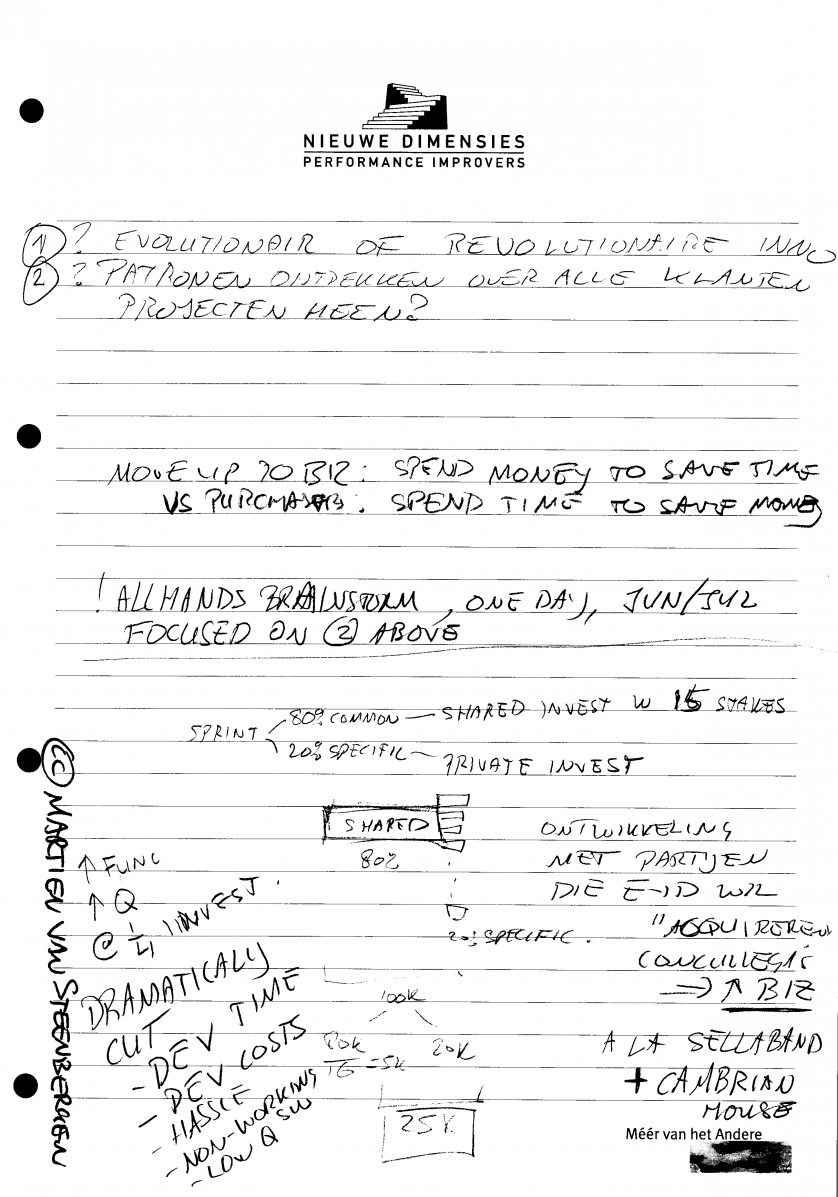 NIEUWE DIMENSIES
PERFORMANCE IMPROVERS
1) ? EVOLUTIONAIR OF REVOLUTIONAIRE INNO
2 ? PATRONEN ONTDEKKEN OVER ALLE KLANTEN
PROJECTEN HEEN?
MOVE UP TO BIZ: SPEND MONEY TO SAVE TIME
VS PURCHASERS: SPEND TIME TO SAVE MONEY
! ALLHANDS BRAINSTORM, ONE DAY, JUN/JUL
FOCUSED ON (2) ABOVE
SPRINT
80% COMMON — SHARED INVEST W 16 STAKES
20% SPECIFIC — PRIVATE INVEST
SHARED
80%
20% SPECIFIC.
ONTWIKKELING
MET PARTIJEN
DIE E-ID WIL
"ACQUIREREN
CONCULLEGA'S
=> ↑ BIZ
↑ FUNC
↑ Q
@ 1/4 INVEST.
DRAMATICALLY
CUT
- DEV TIME
- DEV COSTS
- HASSLE
- NON-WORKING SW
- LOW Q
100K
80K
/16 = 5K
20K
25K
A LA SELLABAND
+ CAMBRIAN
HOUSE
(CC) MARTIEN VAN STEENBERGEN
Méér van het Andere